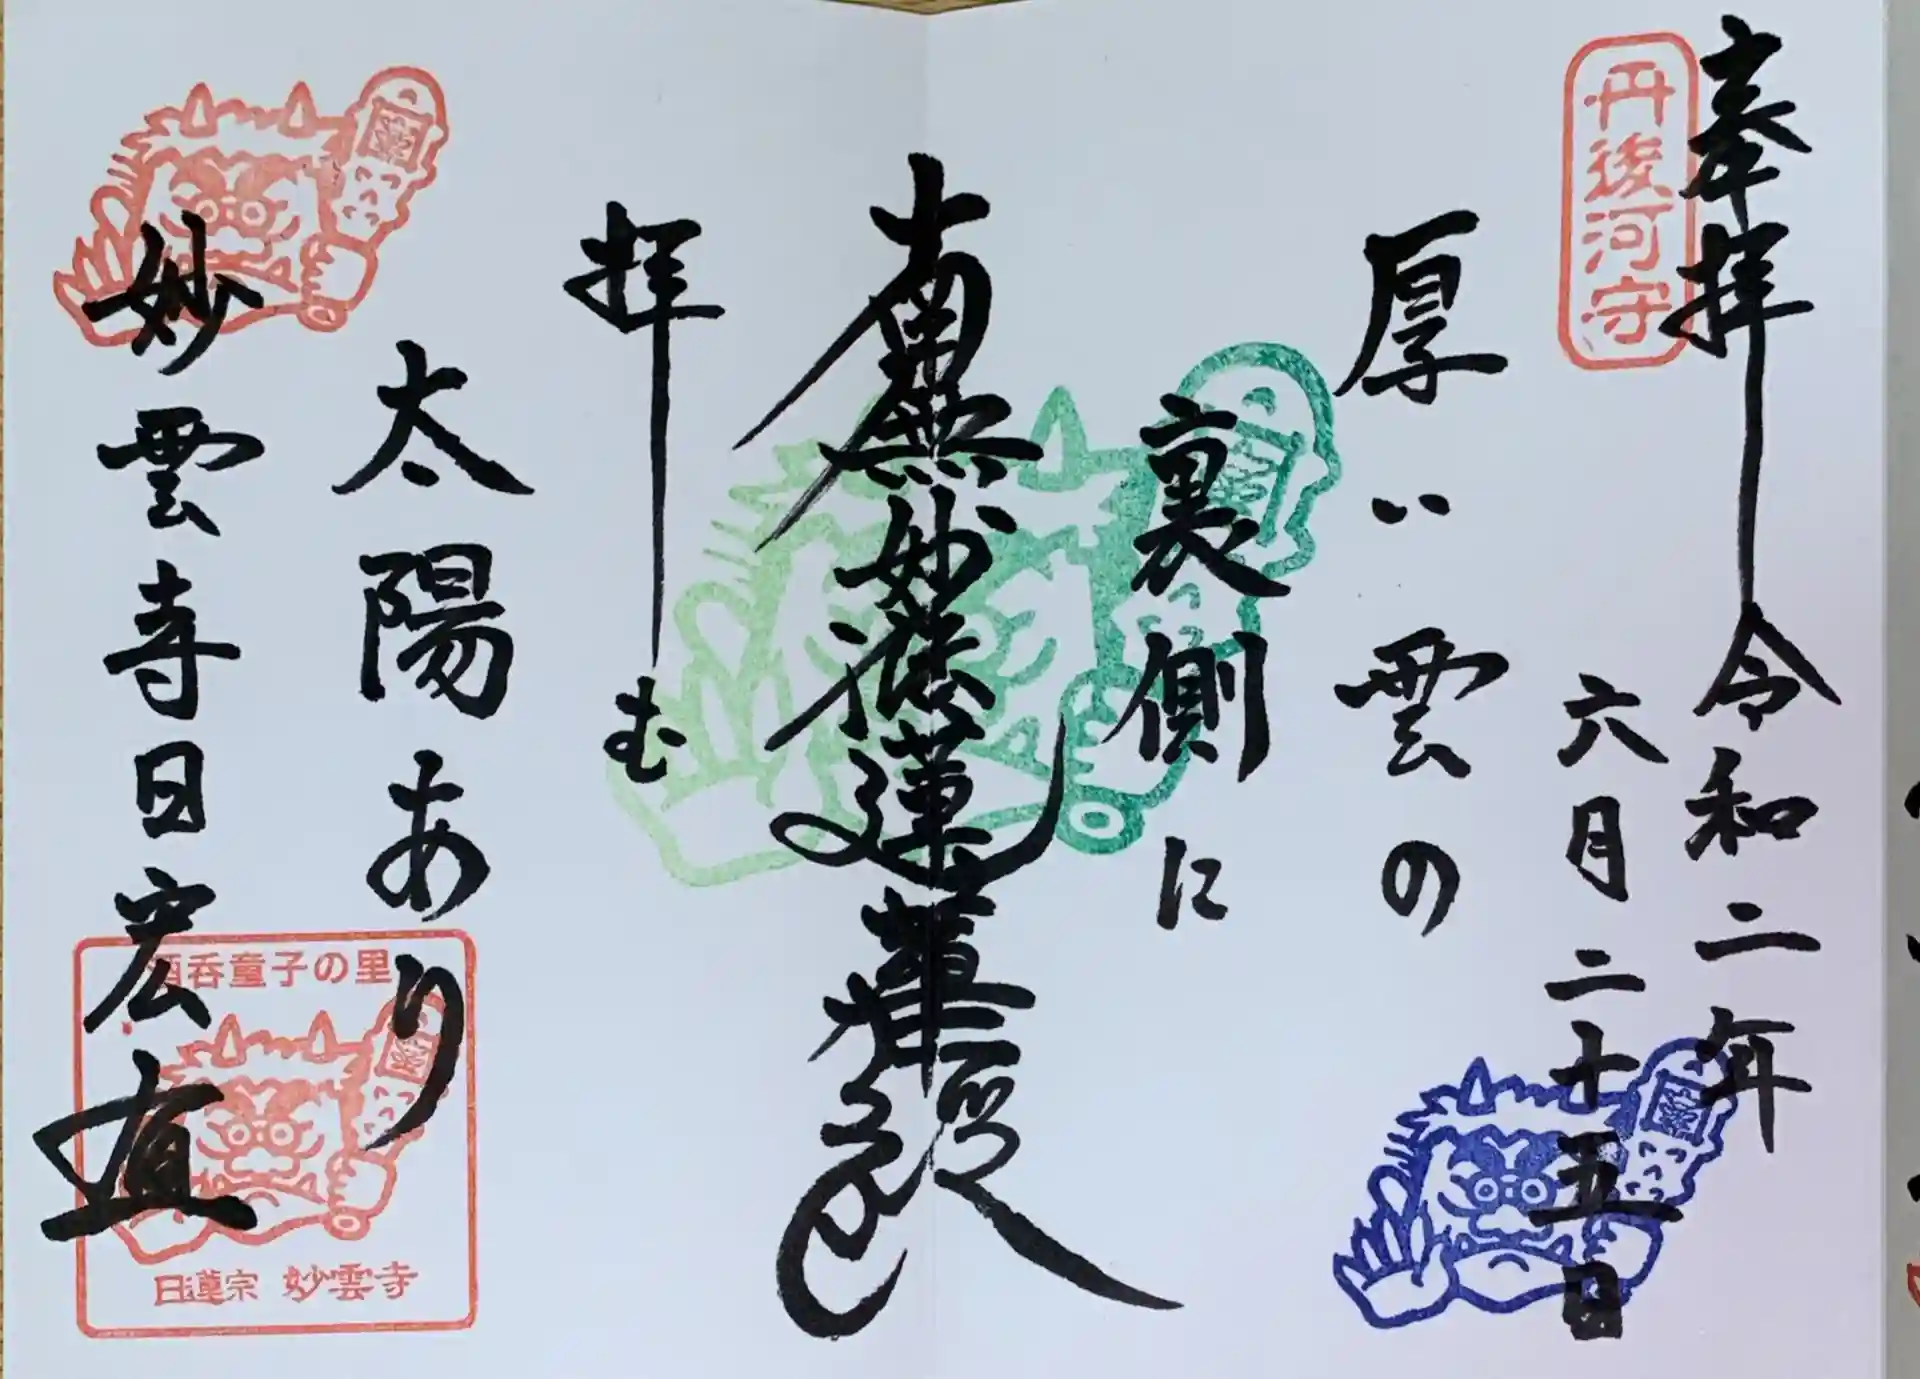 奉拝
令和二年
六月二十五日
丹後河守
厚い雲の
裏側に
南無妙法蓮華経
拝む
太陽あり
妙雲寺日宏
酒呑童子の里
日蓮宗 妙雲寺